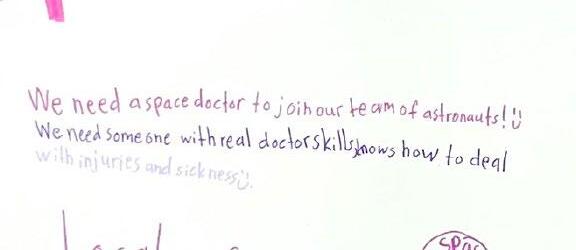 We need a space doctor to join our team of astronauts! ü
We need some one with real doctor skills, knows how to deal
with injuries and sickness ü.
spac